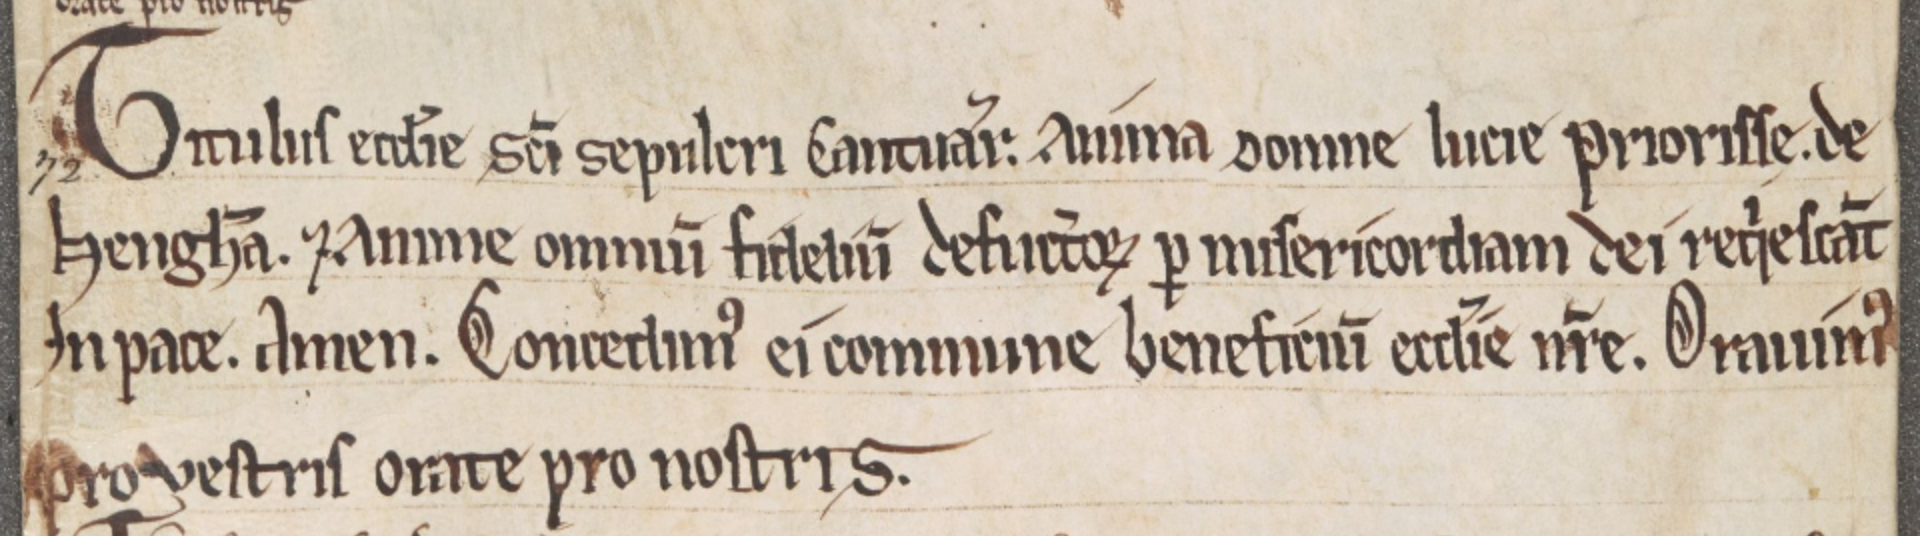 orate pro nostris
Titulus eccl̄ie sc̄i sepulcri Cantuar̄. Anima domne lucie priorisse. de
72
hengh̄a. ⁊ Anime omniū fideliū defūctoꝝ ꝑ misericordiam dei req̇escāt
In pace. Amen. Concedimꝰ ei commune beneficiū eccl̄ie nr̄e. Orauimꝰ
pro vestris orate pro nostris.